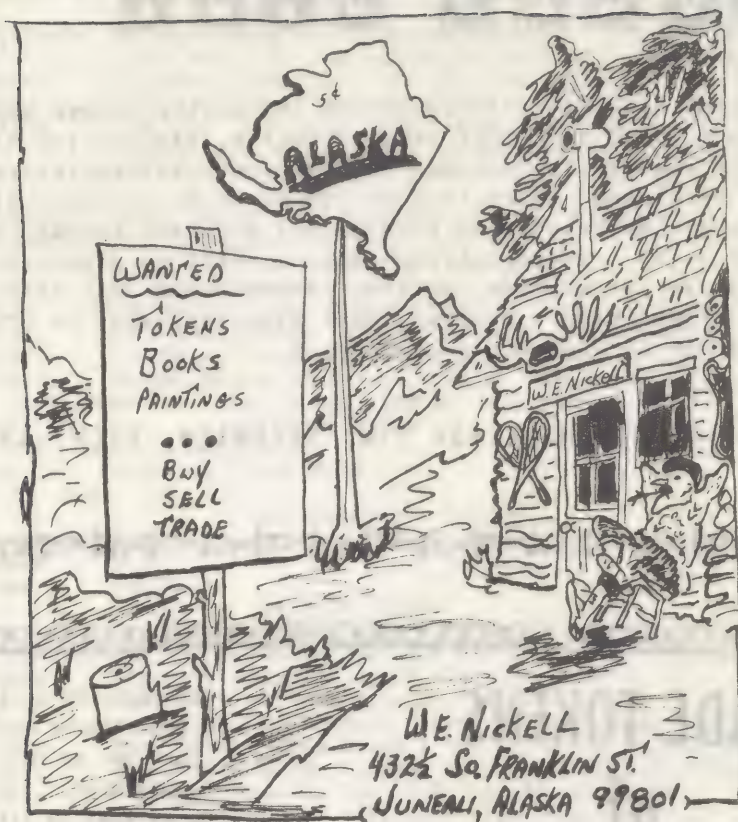 5¢
ALASKA
WANTED
TOKENS
BOOKS
PAINTINGS
...
BUY
SELL
TRADE
W.E. Nickell
W.E. NICKELL
432½ SO. FRANKLIN ST.
JUNEAU, ALASKA 99801